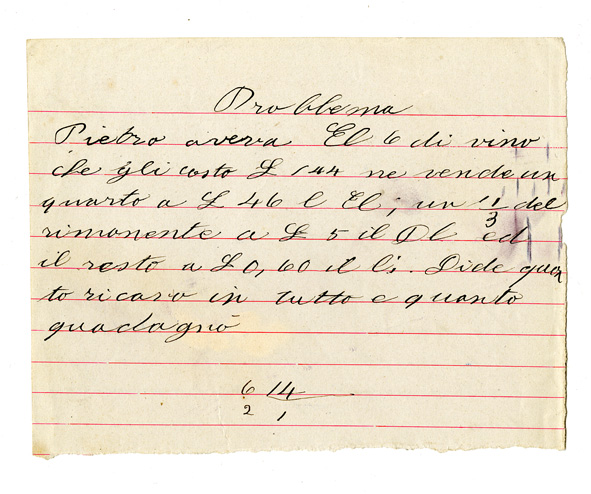 Problema
Pietro aveva El 6 di vino
che gli costo £ 144 ne vende un
quarto a £ 46 l El; un 1/3 del
rimonente a £ 5 il Dl ed
il resto a £ 0,60 il li. Dide quan
to ricaso in tutto e quanto
guadagnò
6 14
2 1